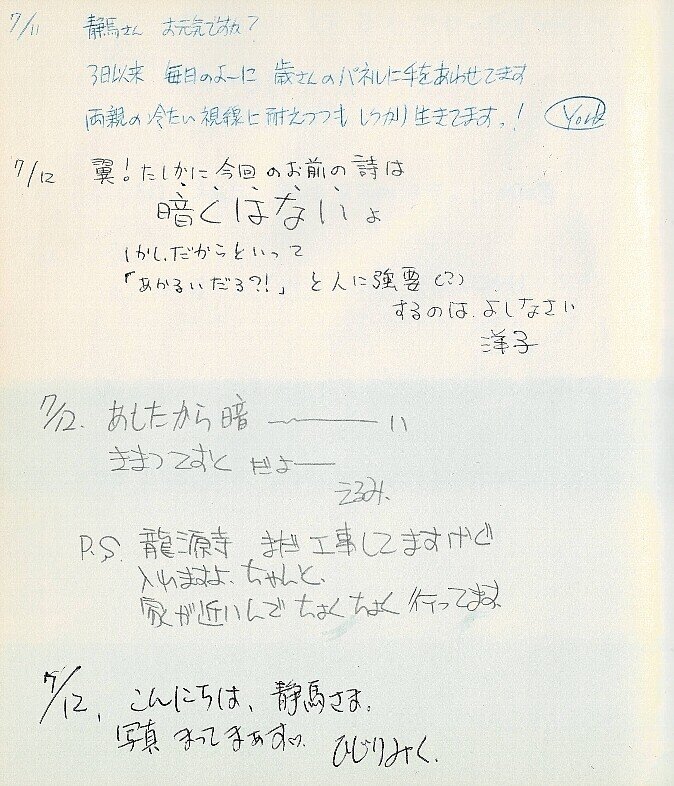 7/11 静馬さん お元気ですか?
3日以来 毎日のよーに 歳さんのパネルに手をあわせてます
両親の冷たい視線に耐えつつも しっかり生きてます。!
7/12 翼!たしかに今回のお前の詩は
暗くはないよ
しかしだからといって
「あかるいだろ?!」と人に強要(?)
するのは よしなさい
洋子
7/12. あしたから暗〜――い
きまつてすと だよ――
P.S. 龍源寺 まだ工事してますけど
入れますよ、ちゃんと、
家が近いんで ちょくちょく 行ってます
7/12, こんにちは、静馬さま。
写真 まってまぁすッ ひじりみく.